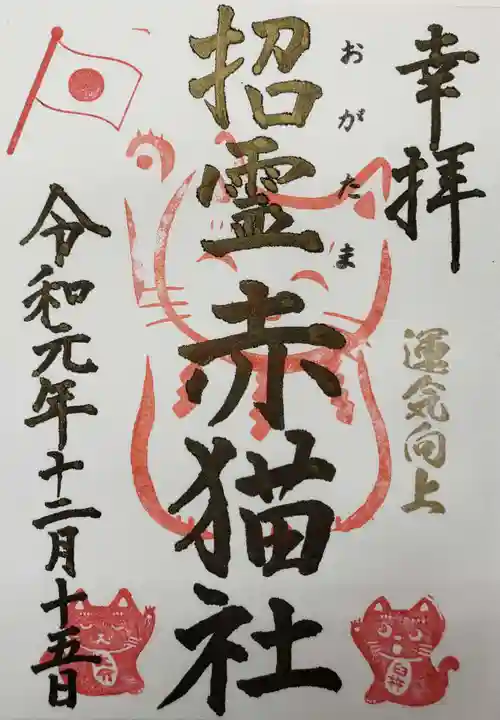 幸拝
運気向上
招霊赤猫社
おがたま
令和元年十二月十五日
臼杵